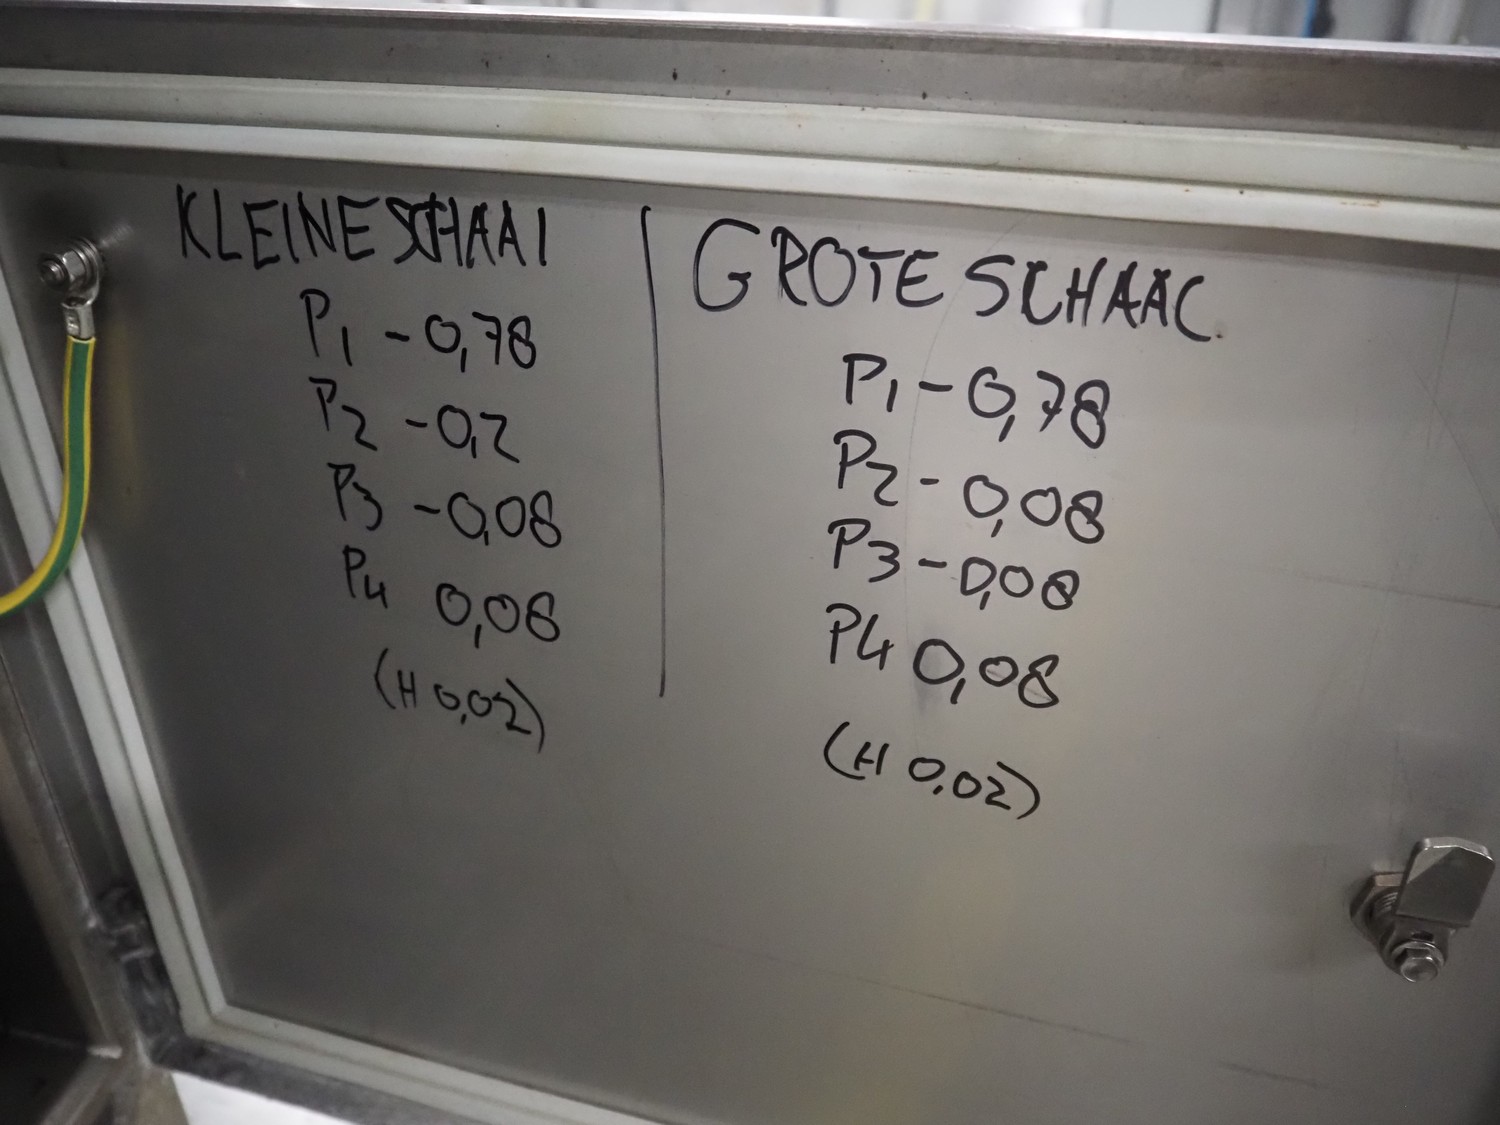 KLEINE SCHAAl
P1 - 0,78
P2 - 0,2
P3 - 0,08
P4 0,08
(H 0,02)
GROTE SCHAAL
P1 - 0,78
P2 - 0,08
P3 - 0,08
P4 0,08
(H 0,02)